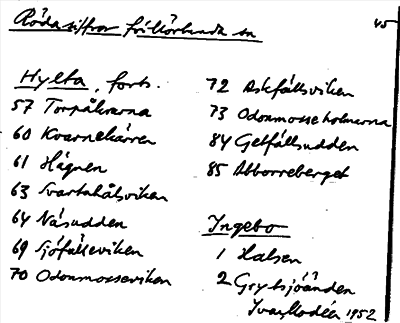 Röda siffror
45
Hylta, forts.
57 Torpåkrarna
60 Kvarnekärren
61 Hägnen
63 Svartahålsviken
64 Näsudden
69 Sjöfälleviken
70 Odonmosseviken
72 Askfällsviken
73 Odonmosseholmarna
84 Getfällsudden
85 Abborreberget
Ingebo
1 Halsen
2 Grytsjöänden
Ivar Modéer 1952